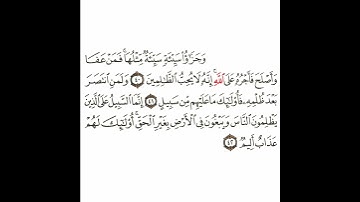 وَجَزَٰٓؤُا۟ سَيِّئَةٍ سَيِّئَةٌ مِّثْلُهَا ۖ فَمَنْ عَفَا
وَأَصْلَحَ فَأَجْرُهُۥ عَلَى ٱللَّهِ ۚ إِنَّهُۥ لَا يُحِبُّ ٱلظَّٰلِمِينَ ٤٠ وَلَمَنِ ٱنتَصَرَ
بَعْدَ ظُلْمِهِۦ فَأُو۟لَٰٓئِكَ مَا عَلَيْهِم مِّن سَبِيلٍ ٤١ إِنَّمَا ٱلسَّبِيلُ عَلَى ٱلَّذِينَ
يَظْلِمُونَ ٱلنَّاسَ وَيَبْغُونَ فِى ٱلْأَرْضِ بِغَيْرِ ٱلْحَقِّ ۚ أُو۟لَٰٓئِكَ لَهُمْ
عَذَابٌ أَلِيمٌ ٤٢